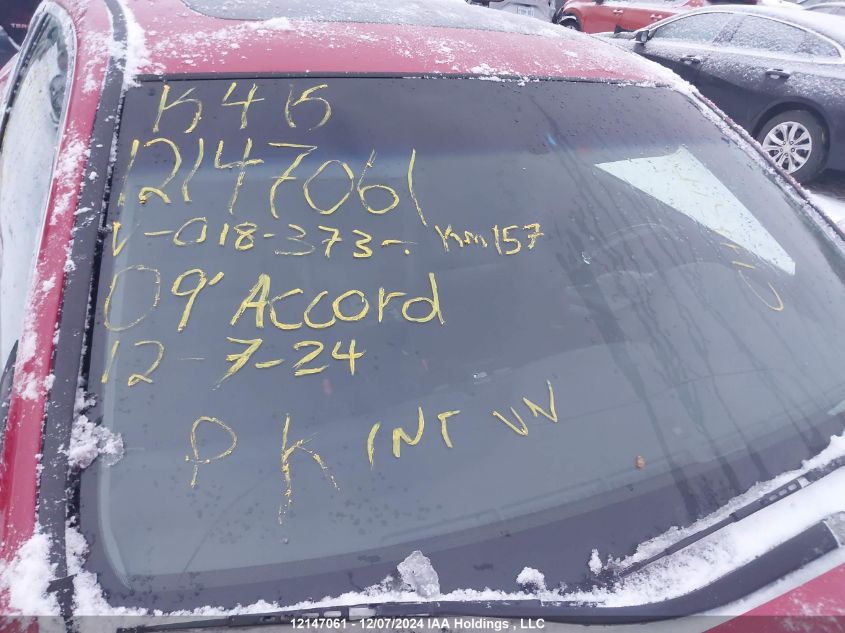 K415
12147061
V-018-373-. KM157
09' Accord
12-7-24
PK INT VN
12147061 - 12/07/2024 IAA Holdings, LLC